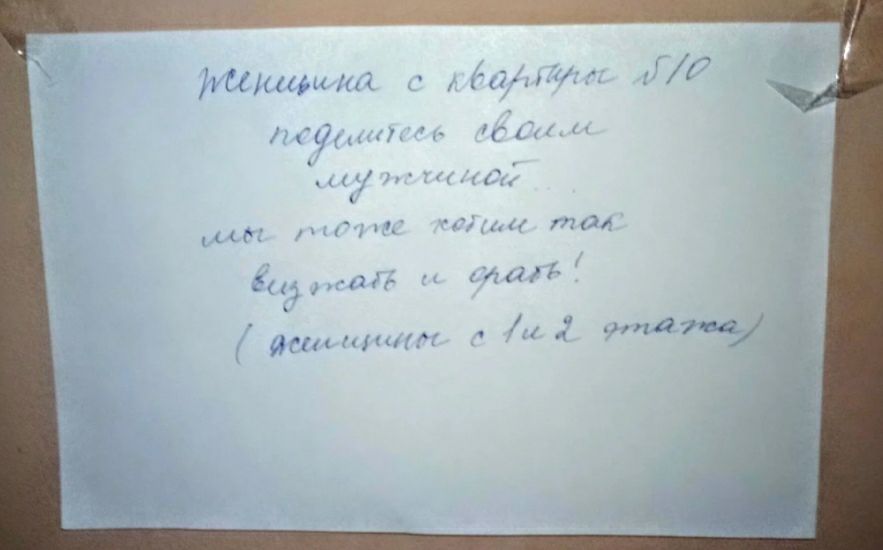 Женщина с квартиры 510
поделитесь своим
мужчиной...
мы тоже хотим так
визжать и орать!
(женщины с 1 и 2 этажа)